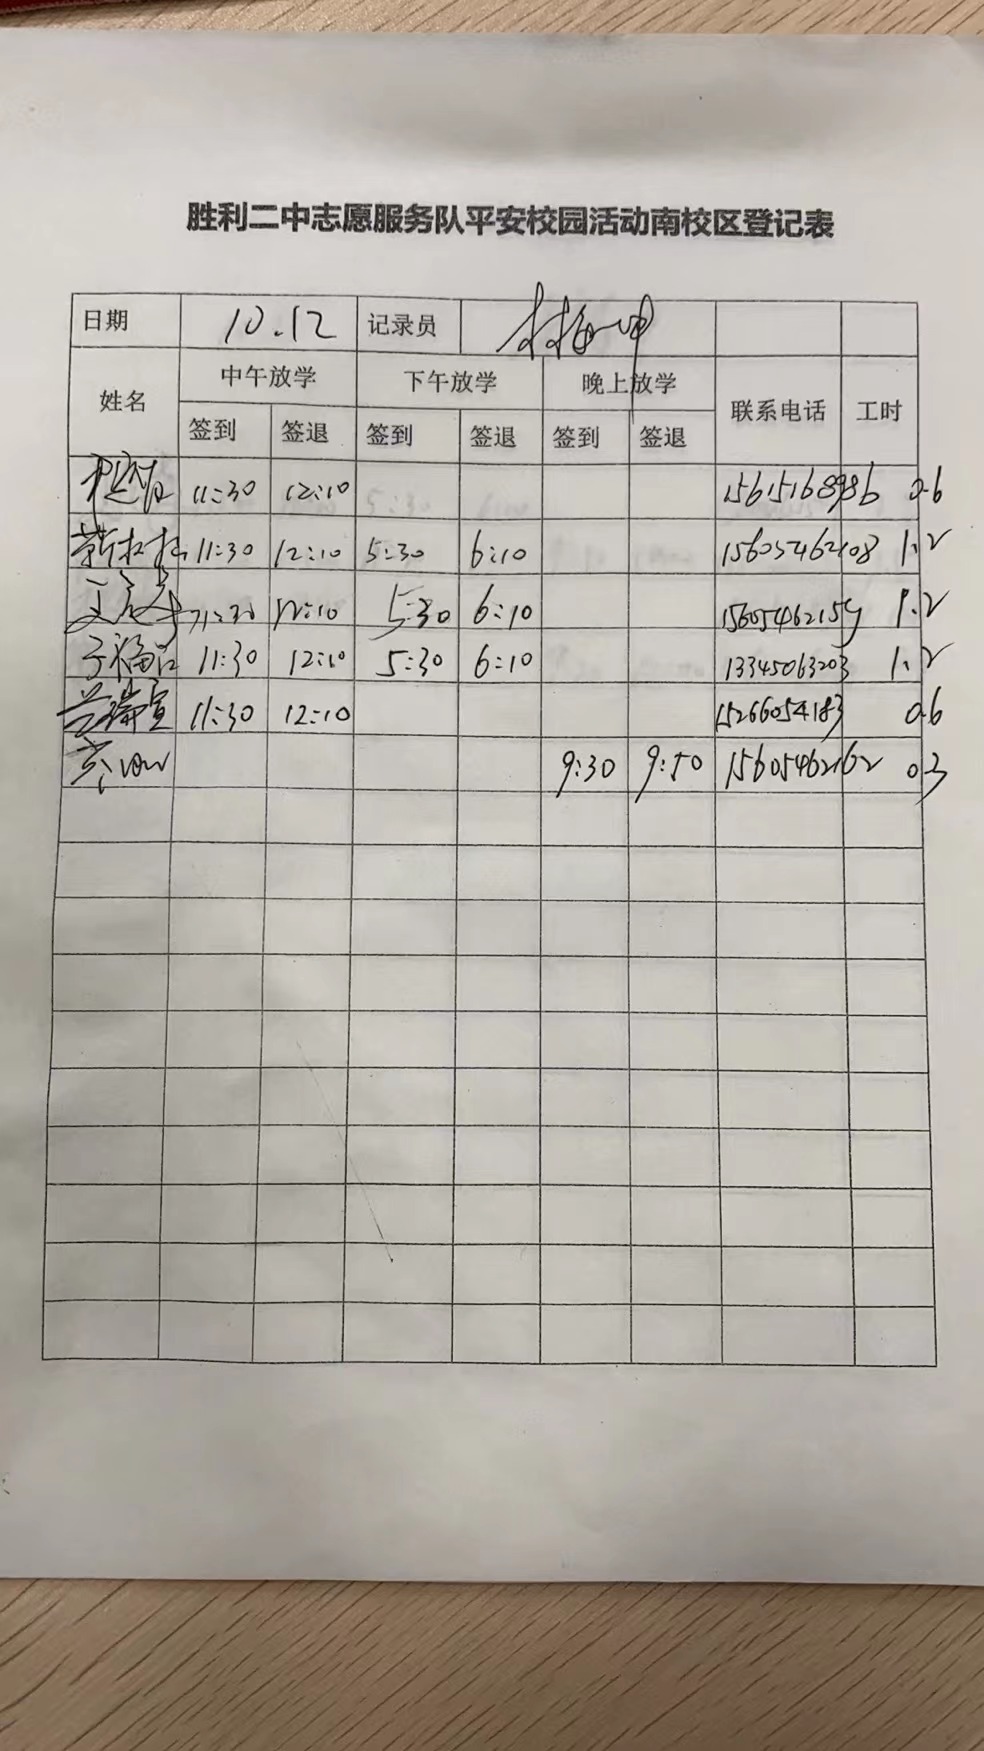 胜利二中志愿服务队平安校园活动南校区登记表
日期 10.12 记录员
姓名 中午放学 下午放学 晚上放学 联系电话 工时
签到 签退 签到 签退 签到 签退
11:30 12:10 15615168986 0.6
11:30 12:10 5:30 6:10 15605462108 1.2
11:30 12:10 5:30 6:10 15605462159 1.2
11:30 12:10 5:30 6:10 13345063203 1.2
11:30 12:10 15266054183 0.6
9:30 9:50 15605462162 0.3